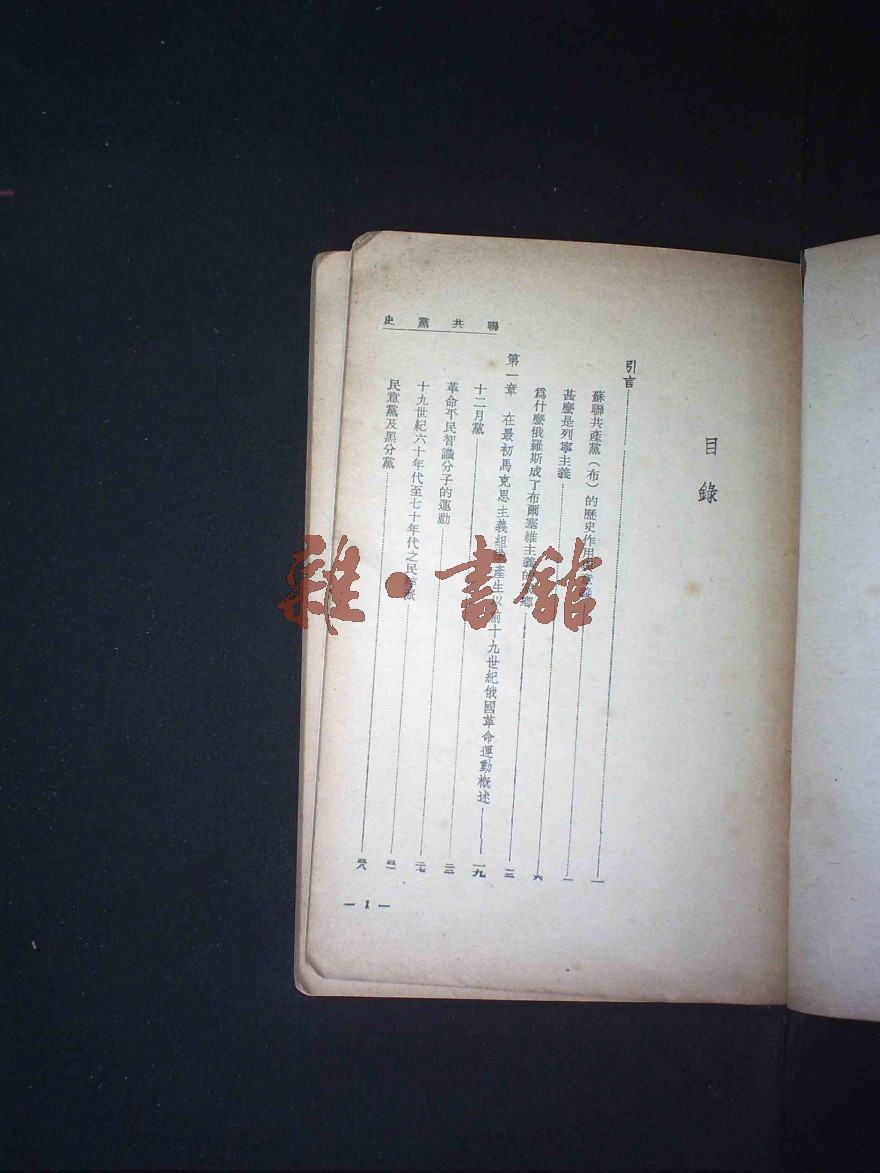 目錄
引言 一
蘇聯共產黨（布）的歷史作用 一
甚麼是列寧主義 六
爲什麼俄羅斯成了布爾塞維主義的鄉 一三
第一章 在最初馬克思主義組織產生以前十九世紀俄國革命運動概述 一九
十二月黨 二三
革命平民智識分子的運動 二七
十九世紀六十年代至七十年代之民
民意黨及黑分黨
聯共黨史
— 1 —
雜·書館